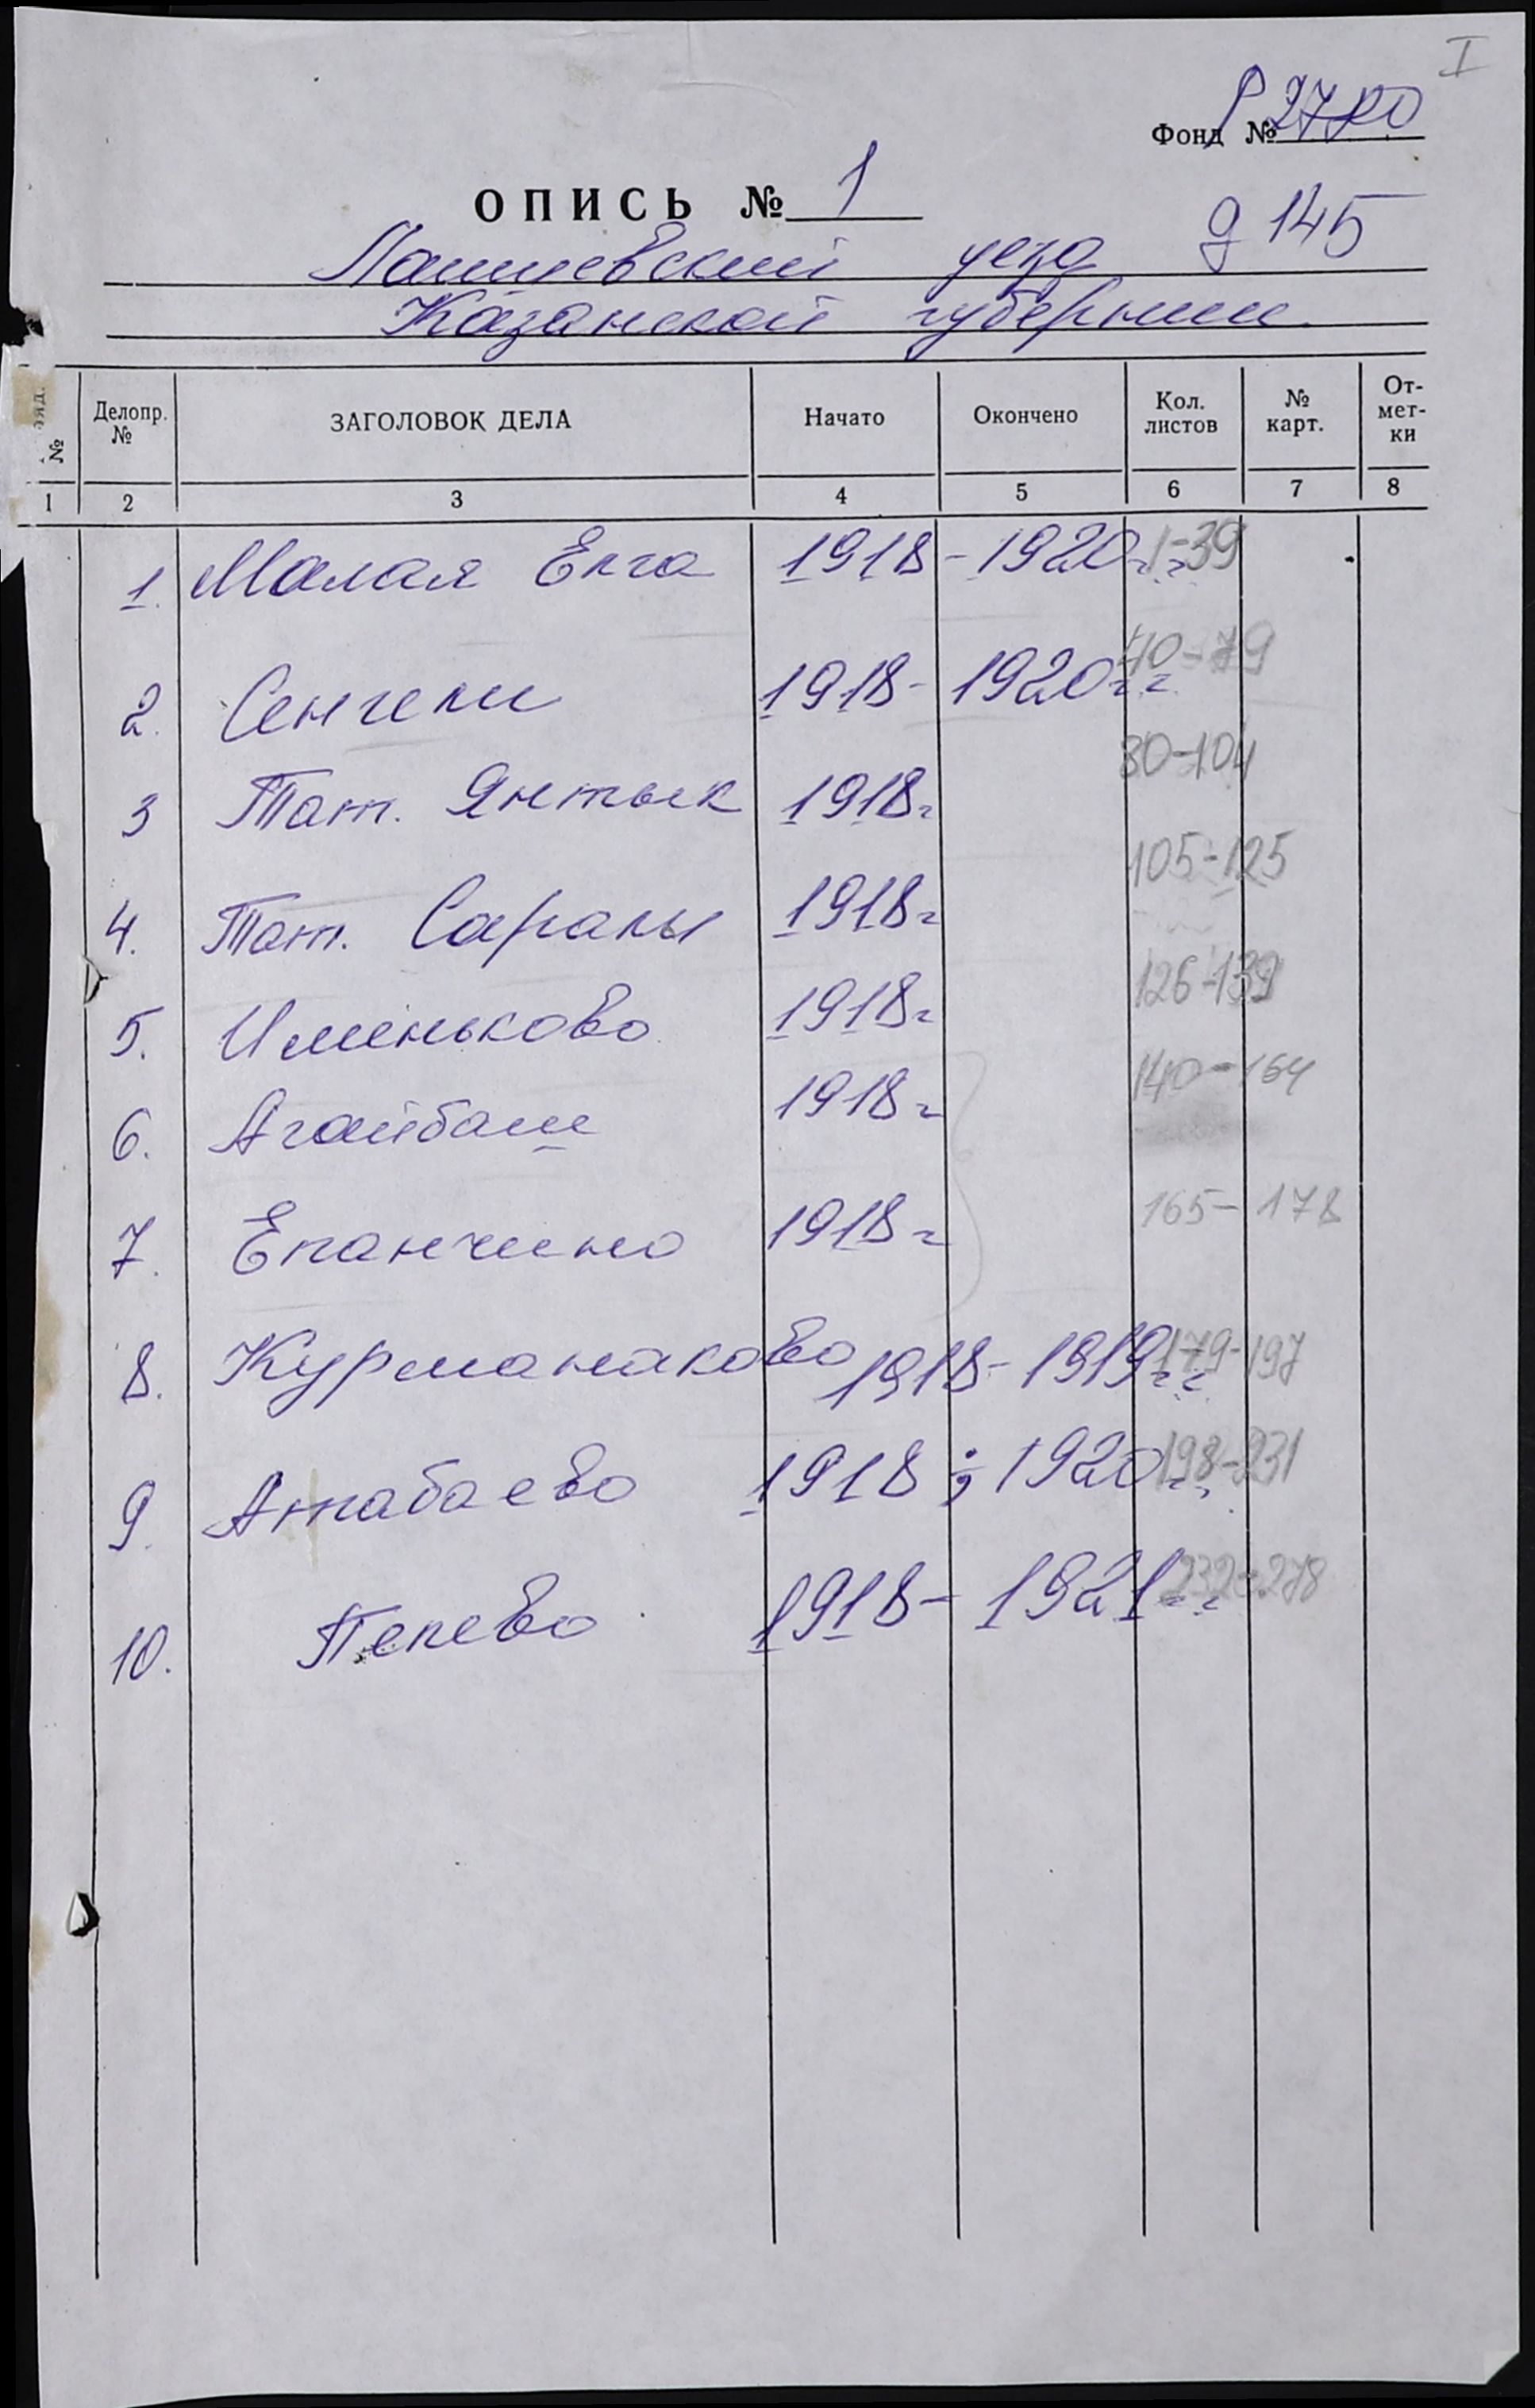 I
Фонд № Р 2780
ОПИСЬ № 1
д 145
Лаишевский уезд
Казанской губернии
№ Делопр. № ЗАГОЛОВОК ДЕЛА Начато Окончено Кол. листов № карт. От-мет-ки
1 2 3 4 5 6 7 8
1. Малая Елга 1918 - 1920гг 1-39
2. Сенгели 1918- 1920гг 40-79
3 Тат. Янтык 1918г 80-104
4. Тат. Саралы 1918г 105-125
5. Именьково 1918г 126-139
6. Агайбаш 1918г 140-164
7. Епанчино 1918г 165-178
8. Курманаково 1918- 1919гг 179-197
9. Атабаево 1918; 1920гг 198-231
10. Пелево 1918- 1921гг 232-278